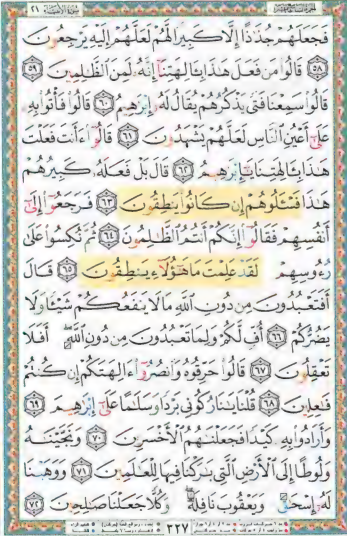 سورة الأنبياء ٢١
فَجَعَلَهُمْ جُذَٰذًا إِلَّا كَبِيرًا لَّهُمْ لَعَلَّهُمْ إِلَيْهِ يَرْجِعُونَ
﴿٥٨﴾ قَالُوا۟ مَن فَعَلَ هَٰذَا بِـَٔالِهَتِنَآ إِنَّهُۥ لَمِنَ ٱلظَّٰلِمِينَ ﴿٥٩﴾
قَالُوا۟ سَمِعْنَا فَتًى يَذْكُرُهُمْ يُقَالُ لَهُۥٓ إِبْرَٰهِيمُ ﴿٦٠﴾ قَالُوا۟ فَأْتُوا۟ بِهِۦ
عَلَىٰٓ أَعْيُنِ ٱلنَّاسِ لَعَلَّهُمْ يَشْهَدُونَ ﴿٦١﴾ قَالُوٓا۟ ءَأَنتَ فَعَلْتَ
هَٰذَا بِـَٔالِهَتِنَا يَٰٓإِبْرَٰهِيمُ ﴿٦٢﴾ قَالَ بَلْ فَعَلَهُۥ كَبِيرُهُمْ
هَٰذَا فَسْـَٔلُوهُمْ إِن كَانُوا۟ يَنطِقُونَ ﴿٦٣﴾ فَرَجَعُوٓا۟ إِلَىٰٓ
أَنفُسِهِمْ فَقَالُوٓا۟ إِنَّكُمْ أَنتُمُ ٱلظَّٰلِمُونَ ﴿٦٤﴾ ثُمَّ نُكِسُوا۟ عَلَىٰ
رُءُوسِهِمْ لَقَدْ عَلِمْتَ مَا هَٰٓؤُلَآءِ يَنطِقُونَ ﴿٦٥﴾ قَالَ
أَفَتَعْبُدُونَ مِن دُونِ ٱللَّهِ مَا لَا يَنفَعُكُمْ شَيْـًٔا وَلَا
يَضُرُّكُمْ ﴿٦٦﴾ أُفٍّ لَّكُمْ وَلِمَا تَعْبُدُونَ مِن دُونِ ٱللَّهِ ۖ أَفَلَا
تَعْقِلُونَ ﴿٦٧﴾ قَالُوا۟ حَرِّقُوهُ وَٱنصُرُوٓا۟ ءَالِهَتَكُمْ إِن كُنتُمْ
فَٰعِلِينَ ﴿٦٨﴾ قُلْنَا يَٰنَارُ كُونِى بَرْدًا وَسَلَٰمًا عَلَىٰٓ إِبْرَٰهِيمَ ﴿٦٩﴾
وَأَرَادُوا۟ بِهِۦ كَيْدًا فَجَعَلْنَٰهُمُ ٱلْأَخْسَرِينَ ﴿٧٠﴾ وَنَجَّيْنَٰهُ
وَلُوطًا إِلَى ٱلْأَرْضِ ٱلَّتِى بَٰرَكْنَا فِيهَا لِلْعَٰلَمِينَ ﴿٧١﴾ وَوَهَبْنَا
لَهُۥٓ إِسْحَٰقَ وَيَعْقُوبَ نَافِلَةً ۖ وَكُلًّا جَعَلْنَا صَٰلِحِينَ ﴿٧٢﴾
٣٢٧